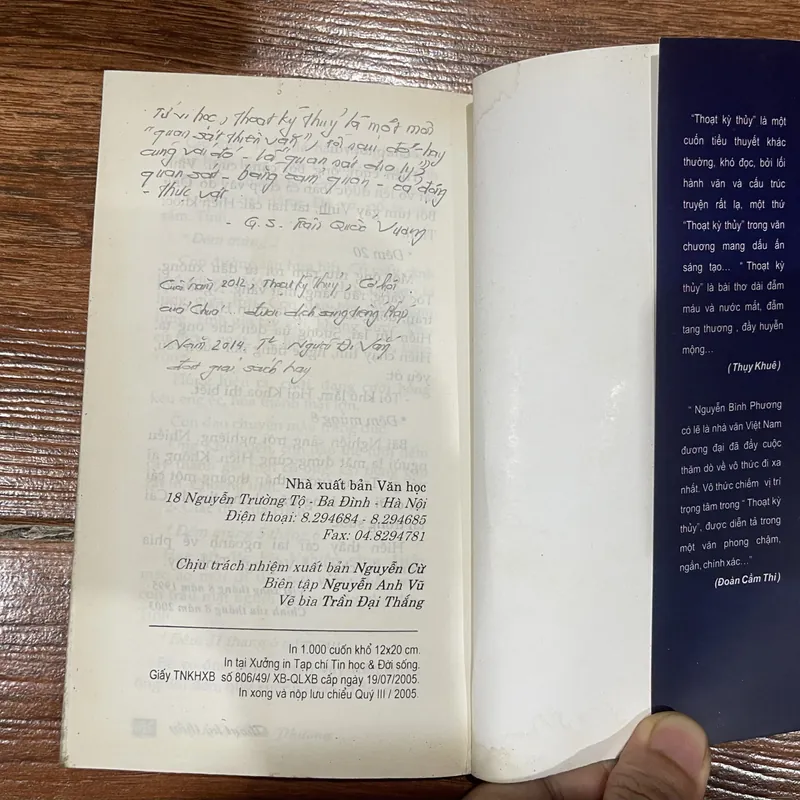 Tử vi học, Thoạt kỳ thủy là một môn
"quan sát thiên văn",
cùng với đó - là quan sát địa lý,
quan sát - bằng cảm quan - cả động
- thực vật
- G.S. Trần Quốc Vượng
Cuối năm 2012, Thoạt kỳ thủy, Cơ hội
của Chúa... được dịch sang tiếng Pháp
Năm 2014, Người Đi Vắng
đoạt giải sách hay
Nhà xuất bản Văn học
18 Nguyễn Trường Tộ - Ba Đình - Hà Nội
Điện thoại: 8.294684 - 8.294685
Fax: 04.8294781
Chịu trách nhiệm xuất bản Nguyễn Cừ
Biên tập Nguyễn Anh Vũ
Vẽ bìa Trần Đại Thắng
In 1.000 cuốn khổ 12x20 cm.
In tại Xưởng in Tạp chí Tin học & Đời sống.
Giấy TNKHXB số 806/49/ XB-QLXB cấp ngày 19/07/2005.
In xong và nộp lưu chiểu Quý III / 2005.
"Thoạt kỳ thủy" là một
cuốn tiểu thuyết khác
thường, khó đọc, bởi lối
hành văn và cấu trúc
truyện rất lạ, một thứ
"Thoạt kỳ thủy" trong văn
chương mang dấu ấn
sáng tạo... " Thoạt kỳ
thủy" là bài thơ dài đẫm
máu và nước mắt, đẫm
tang thương , đầy huyễn
mộng...
(Thụy Khuê)
" Nguyễn Bình Phương
có lẽ là nhà văn Việt Nam
đương đại đã đẩy cuộc
thăm dò về vô thức đi xa
nhất. Vô thức chiếm vị trí
trọng tâm trong " Thoạt kỳ
thủy", được diễn tả trong
một văn phong chậm,
ngắn, chính xác..."
(Đoàn Cầm Thi)